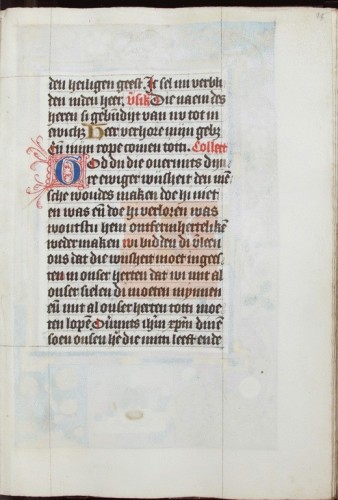 den heiligen geest. Ic sel mi verbli
den inden heer. v̄sik Die naem des
heren si gebn̄dijt van nv tot in
ewich3 Heer verhoze mijn geb3
Eñ mijn rope comen totti. Collect
God du die ouermits dijn
re ewiger wijsheit den mē
sche woudes maken doe hi niet
en was eñ doe hi verloren was
woutstu hem ontfermhertelikē
weder maken wi bidden di v̄leen
ons dat die wijsheit moet ingees
ten in onser herten dat wi mit al
onser sielen di moeten mynnen
eñ mit al onser herten tom moe
ten lopē Ou̇mits ihm̄ xp̄m dinē
soen onsen hē die mitti leeft ende